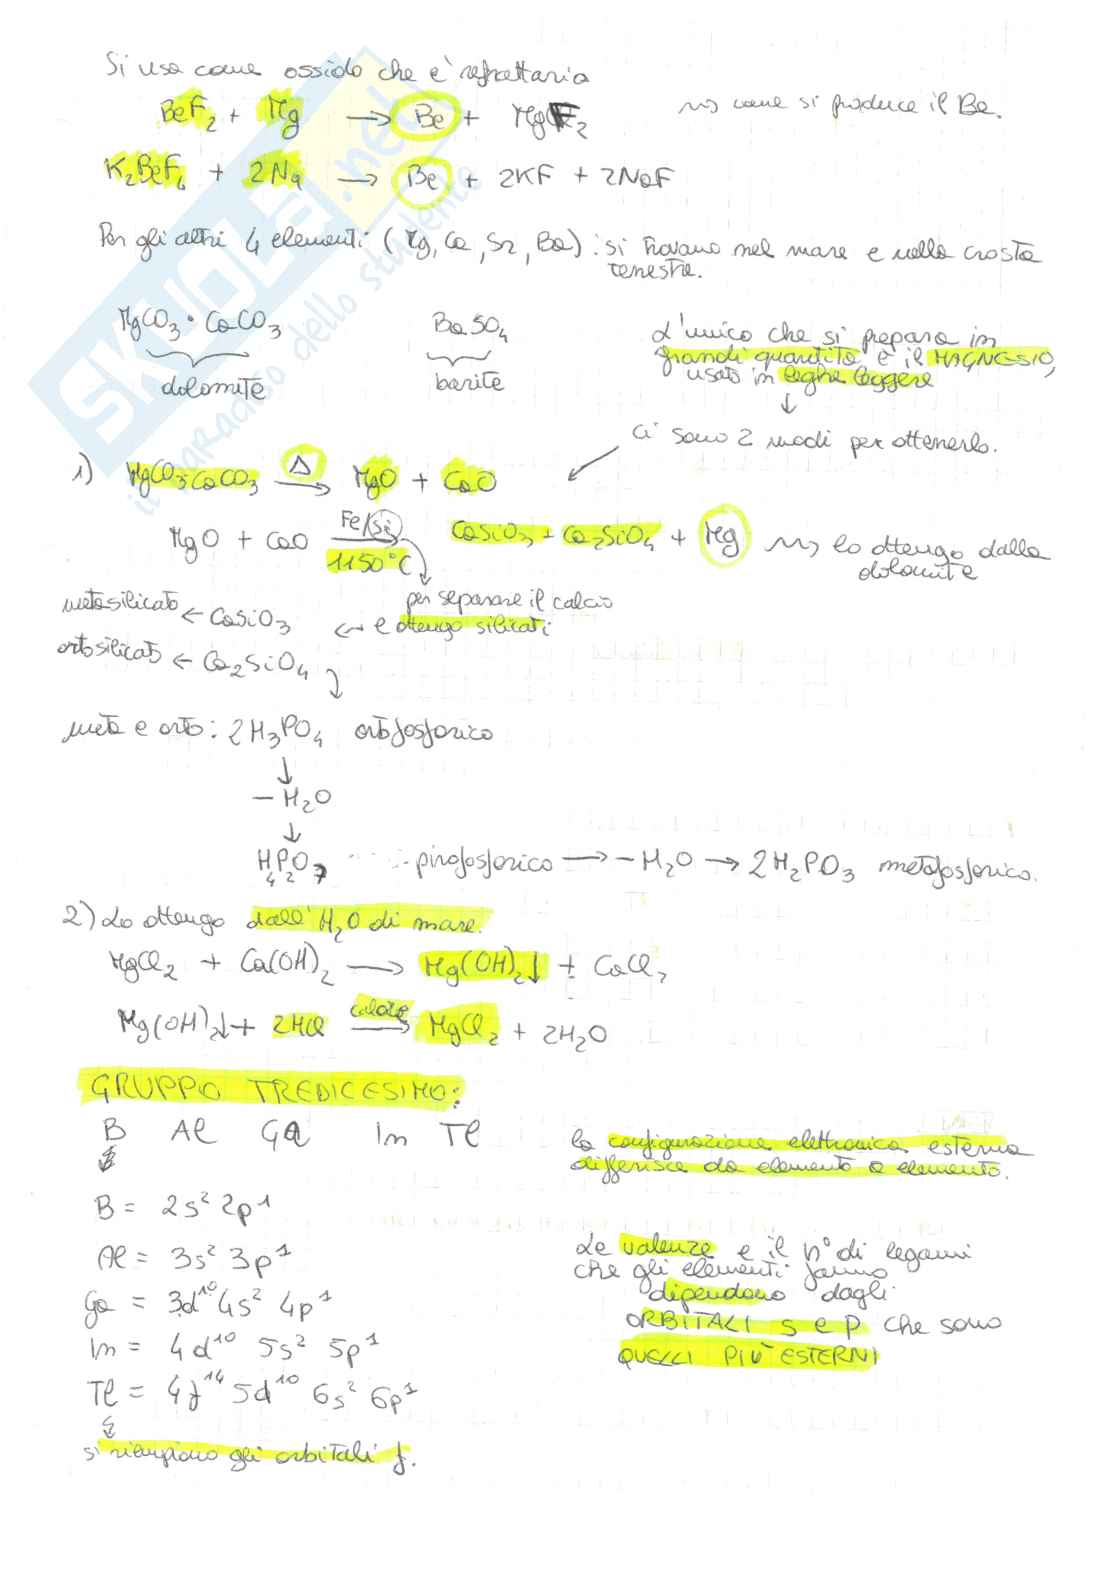 Si usa come ossido che e' refrattario
BeF2 + Mg → Be + MgF2 ⇝ come si produce il Be.
K2BeF4 + 2Na → Be + 2KF + 2NaF
Per gli altri 4 elementi (Mg, Ca, Sr, Ba): si trovano nel mare e nella crosta
terrestre.
MgCO3·CaCO3
dolomite
BaSO4
barite
L'unico che si prepara in
grandi quantità è il MAGNESIO,
usato in leghe leggere
↓
Ci sono 2 modi per ottenerlo.
1) MgCO3CaCO3 Δ→ MgO + CaO
MgO + CaO Fe/Si → 1150°C CaSiO3 + Ca2SiO4 + Mg ⇝ lo ottengo dalla
dolomite
per separare il calcio
e ottengo silicati
metasilicato ← CaSiO3 ←
ortosilicato ← Ca2SiO4
meta e orto: 2H3PO4 ortofosforico
↓
- H2O
↓
H4P2O7 pirofosforico → - H2O → 2H2PO3 metafosforico.
2) Lo ottengo dall'H2O di mare.
MgCl2 + Ca(OH)2 → Mg(OH)2↓ + CaCl2
Mg(OH)2↓ + 2HCl calore→ MgCl2 + 2H2O
GRUPPO TREDICESIMO:
B Al Ga In Tl
la configurazione elettronica esterna
differisce da elemento a elemento.
B = 2s² 2p¹
Al = 3s² 3p¹
Ga = 3d¹⁰ 4s² 4p¹
In = 4d¹⁰ 5s² 5p¹
Tl = 4f¹⁴ 5d¹⁰ 6s² 6p¹
si riempiono gli orbitali f.
Le valenze e il n° di legami
che gli elementi fanno
dipendono dagli
ORBITALI s e p che sono
QUELLI PIÙ ESTERNI
SKUOLA.net
il paradiso dello studente